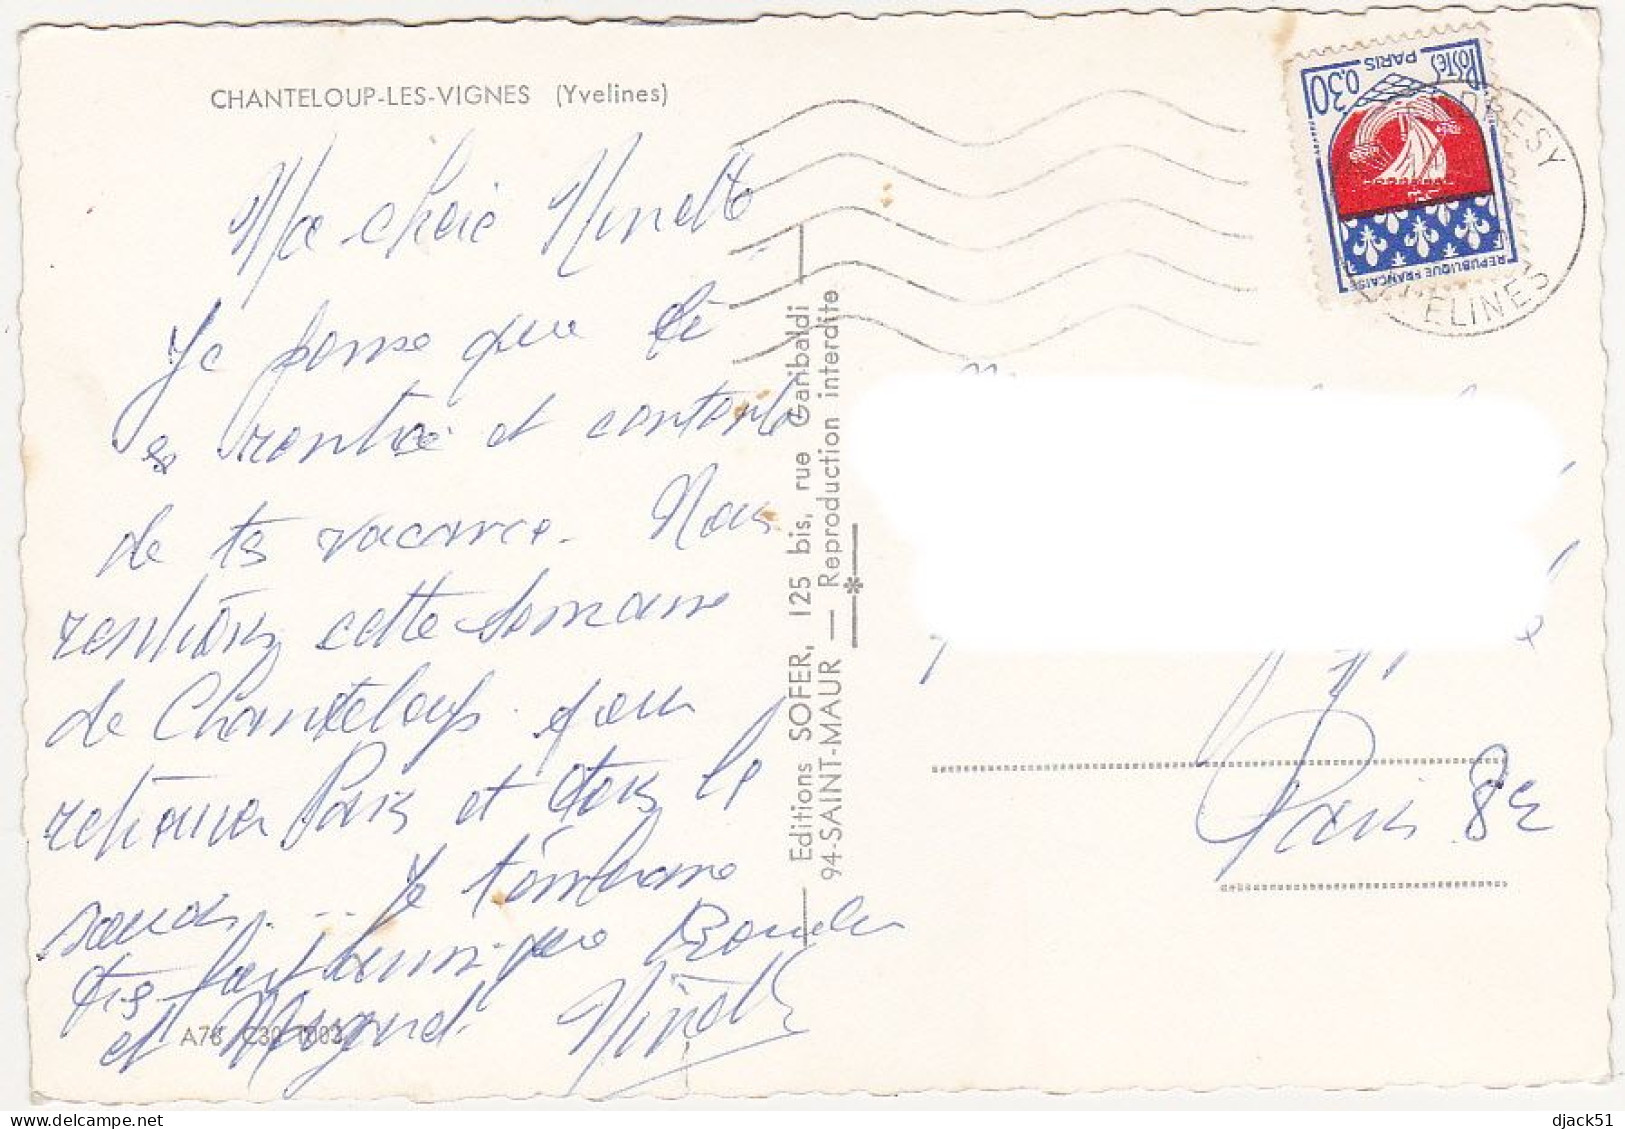 CHANTELOUP-LES-VIGNES (Yvelines)
Ma chère Ninette
Je pense que tu
es rentrée et contente
de tes vacance. Nous
rentrons cette semaine
de Chanteloup pour
retrouver Paris et tous le
soucis... Je t'embrasse
très fort ainsi que
et Ninette
A78 C30 1003
Editions SOFER, 125 bis, rue Garibaldi
94-SAINT-MAUR — Reproduction interdite
POSTES
PARIS
0,30
REPUBLIQUE FRANÇAISE
YVELINES
Paris 8e
delcampe.net
djack51